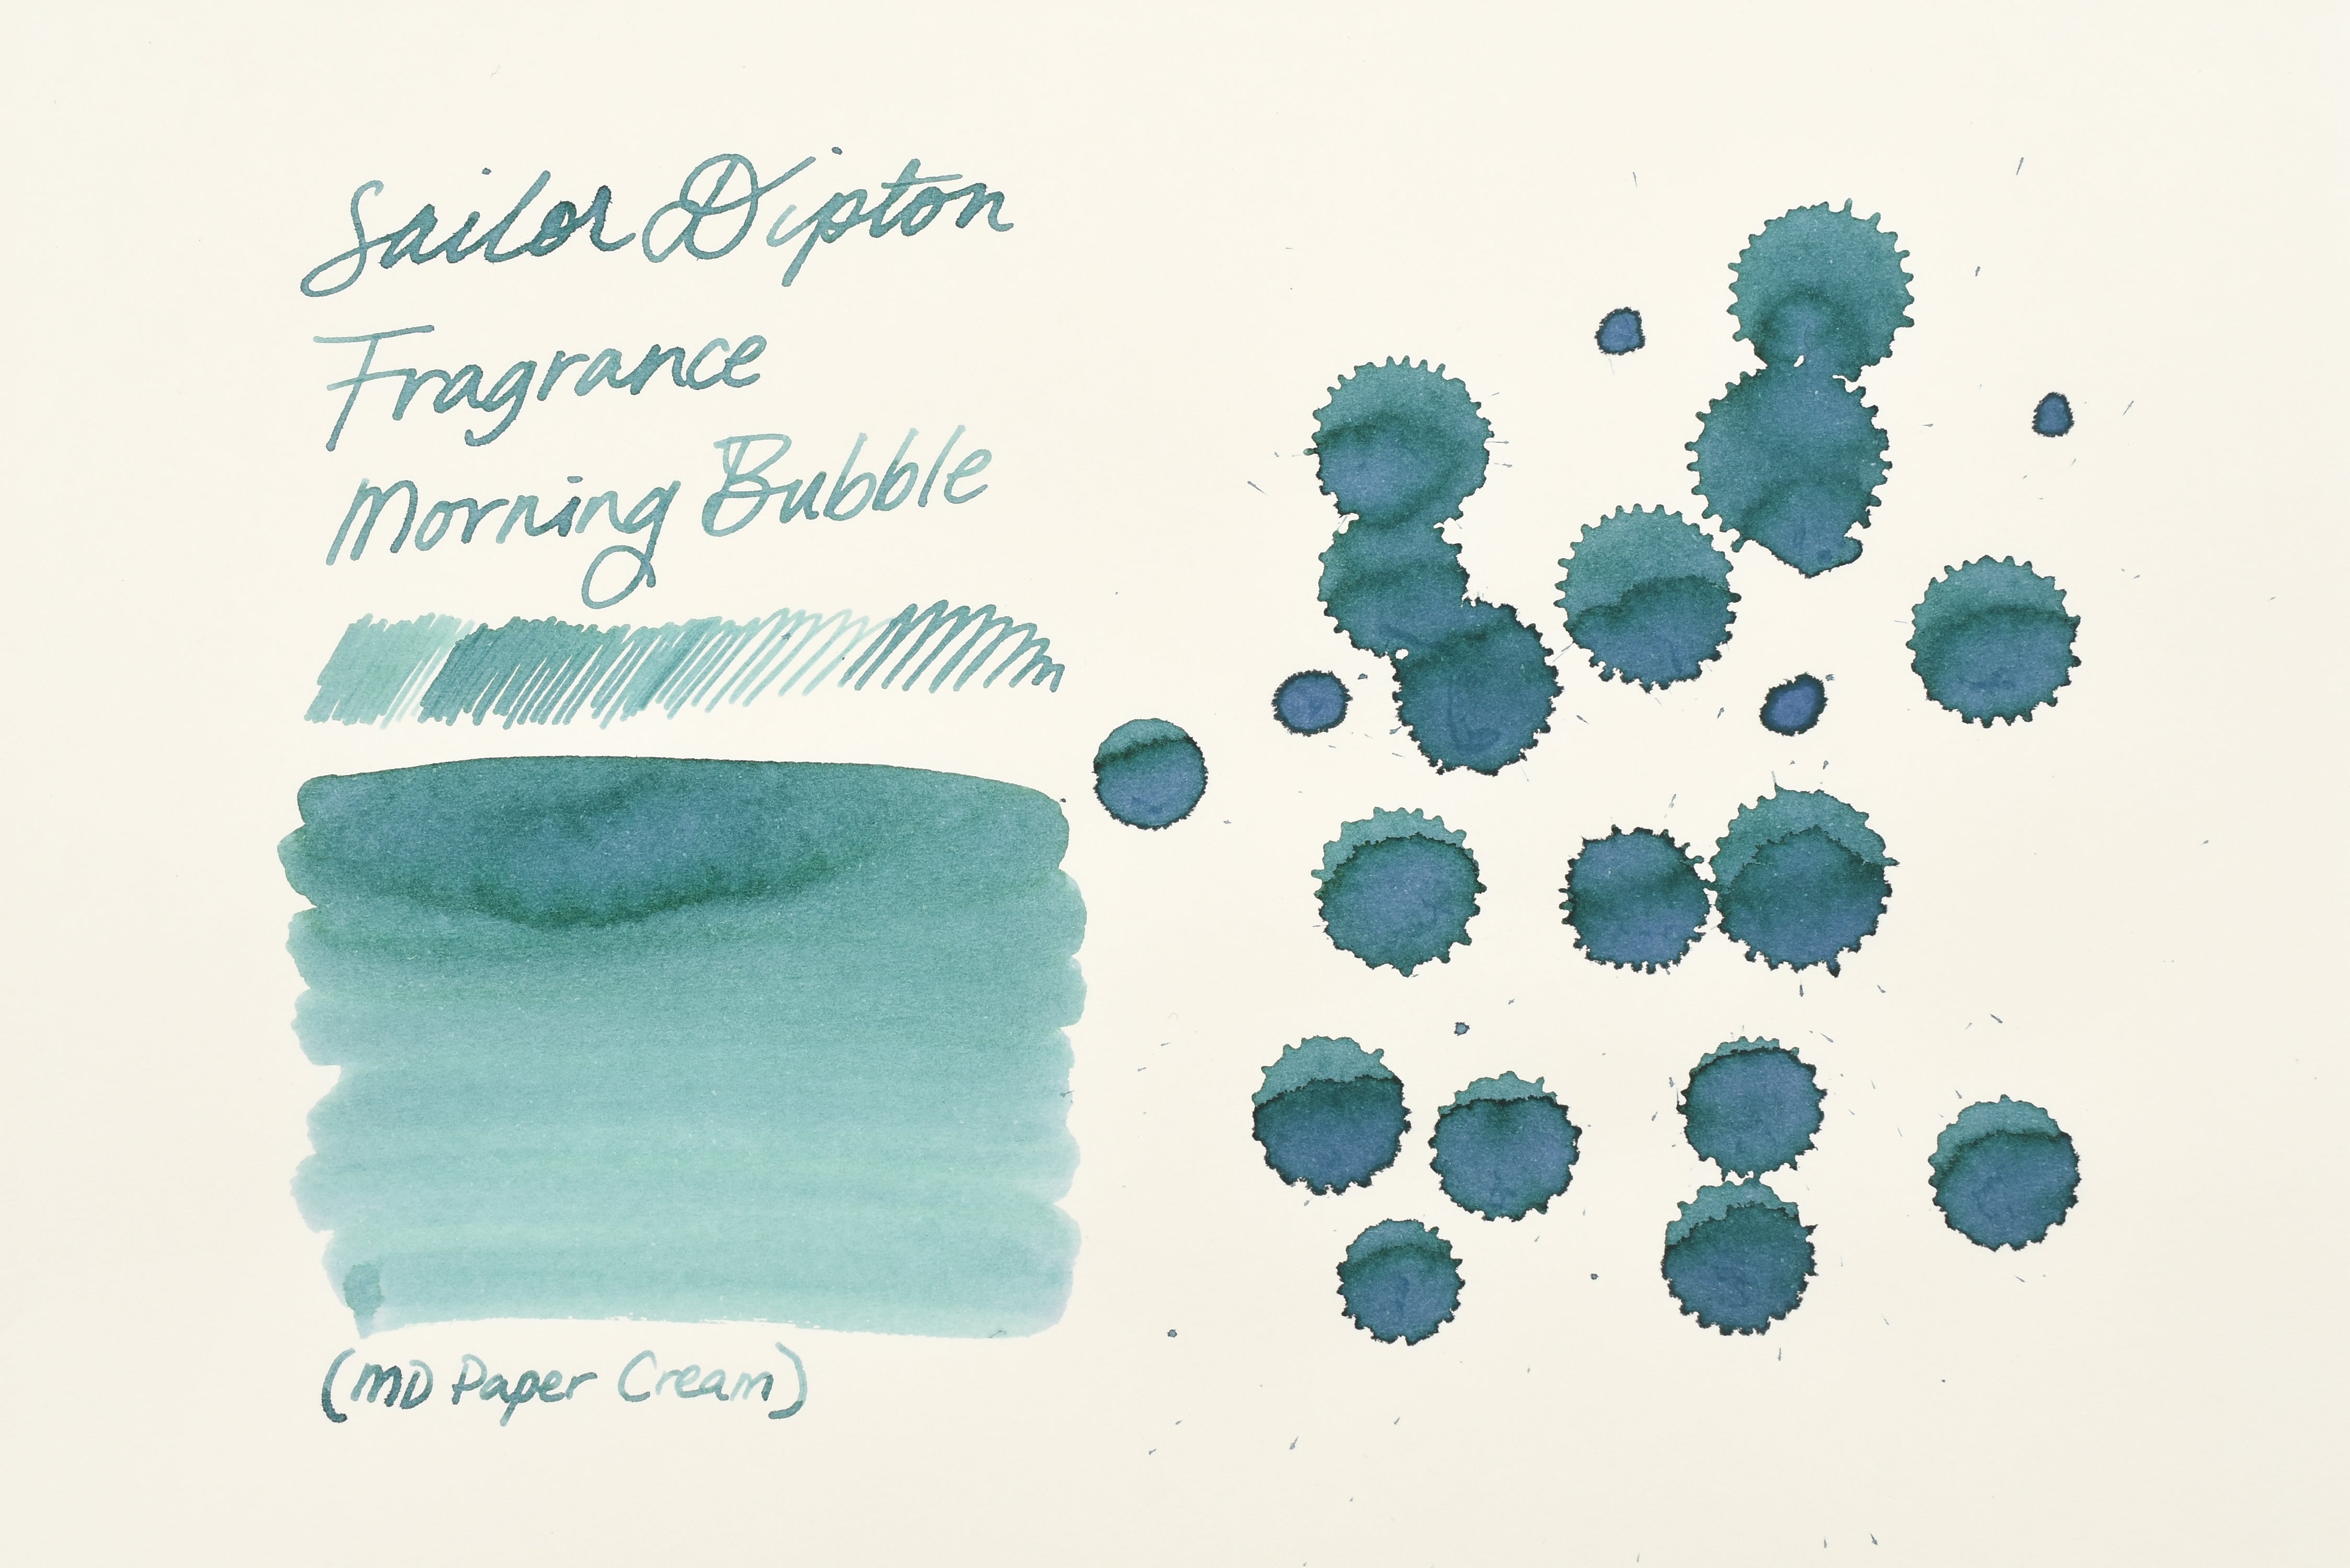 Sailor Dipton
Fragrance
Morning Bubble
(MD Paper Cream)